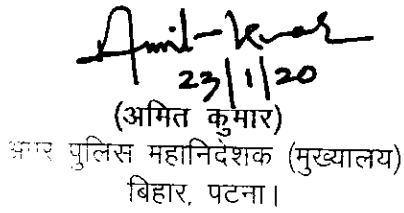 Amit Kumar
23/1/20
(अमित कुमार)
अपर पुलिस महानिदेशक (मुख्यालय)
बिहार, पटना।